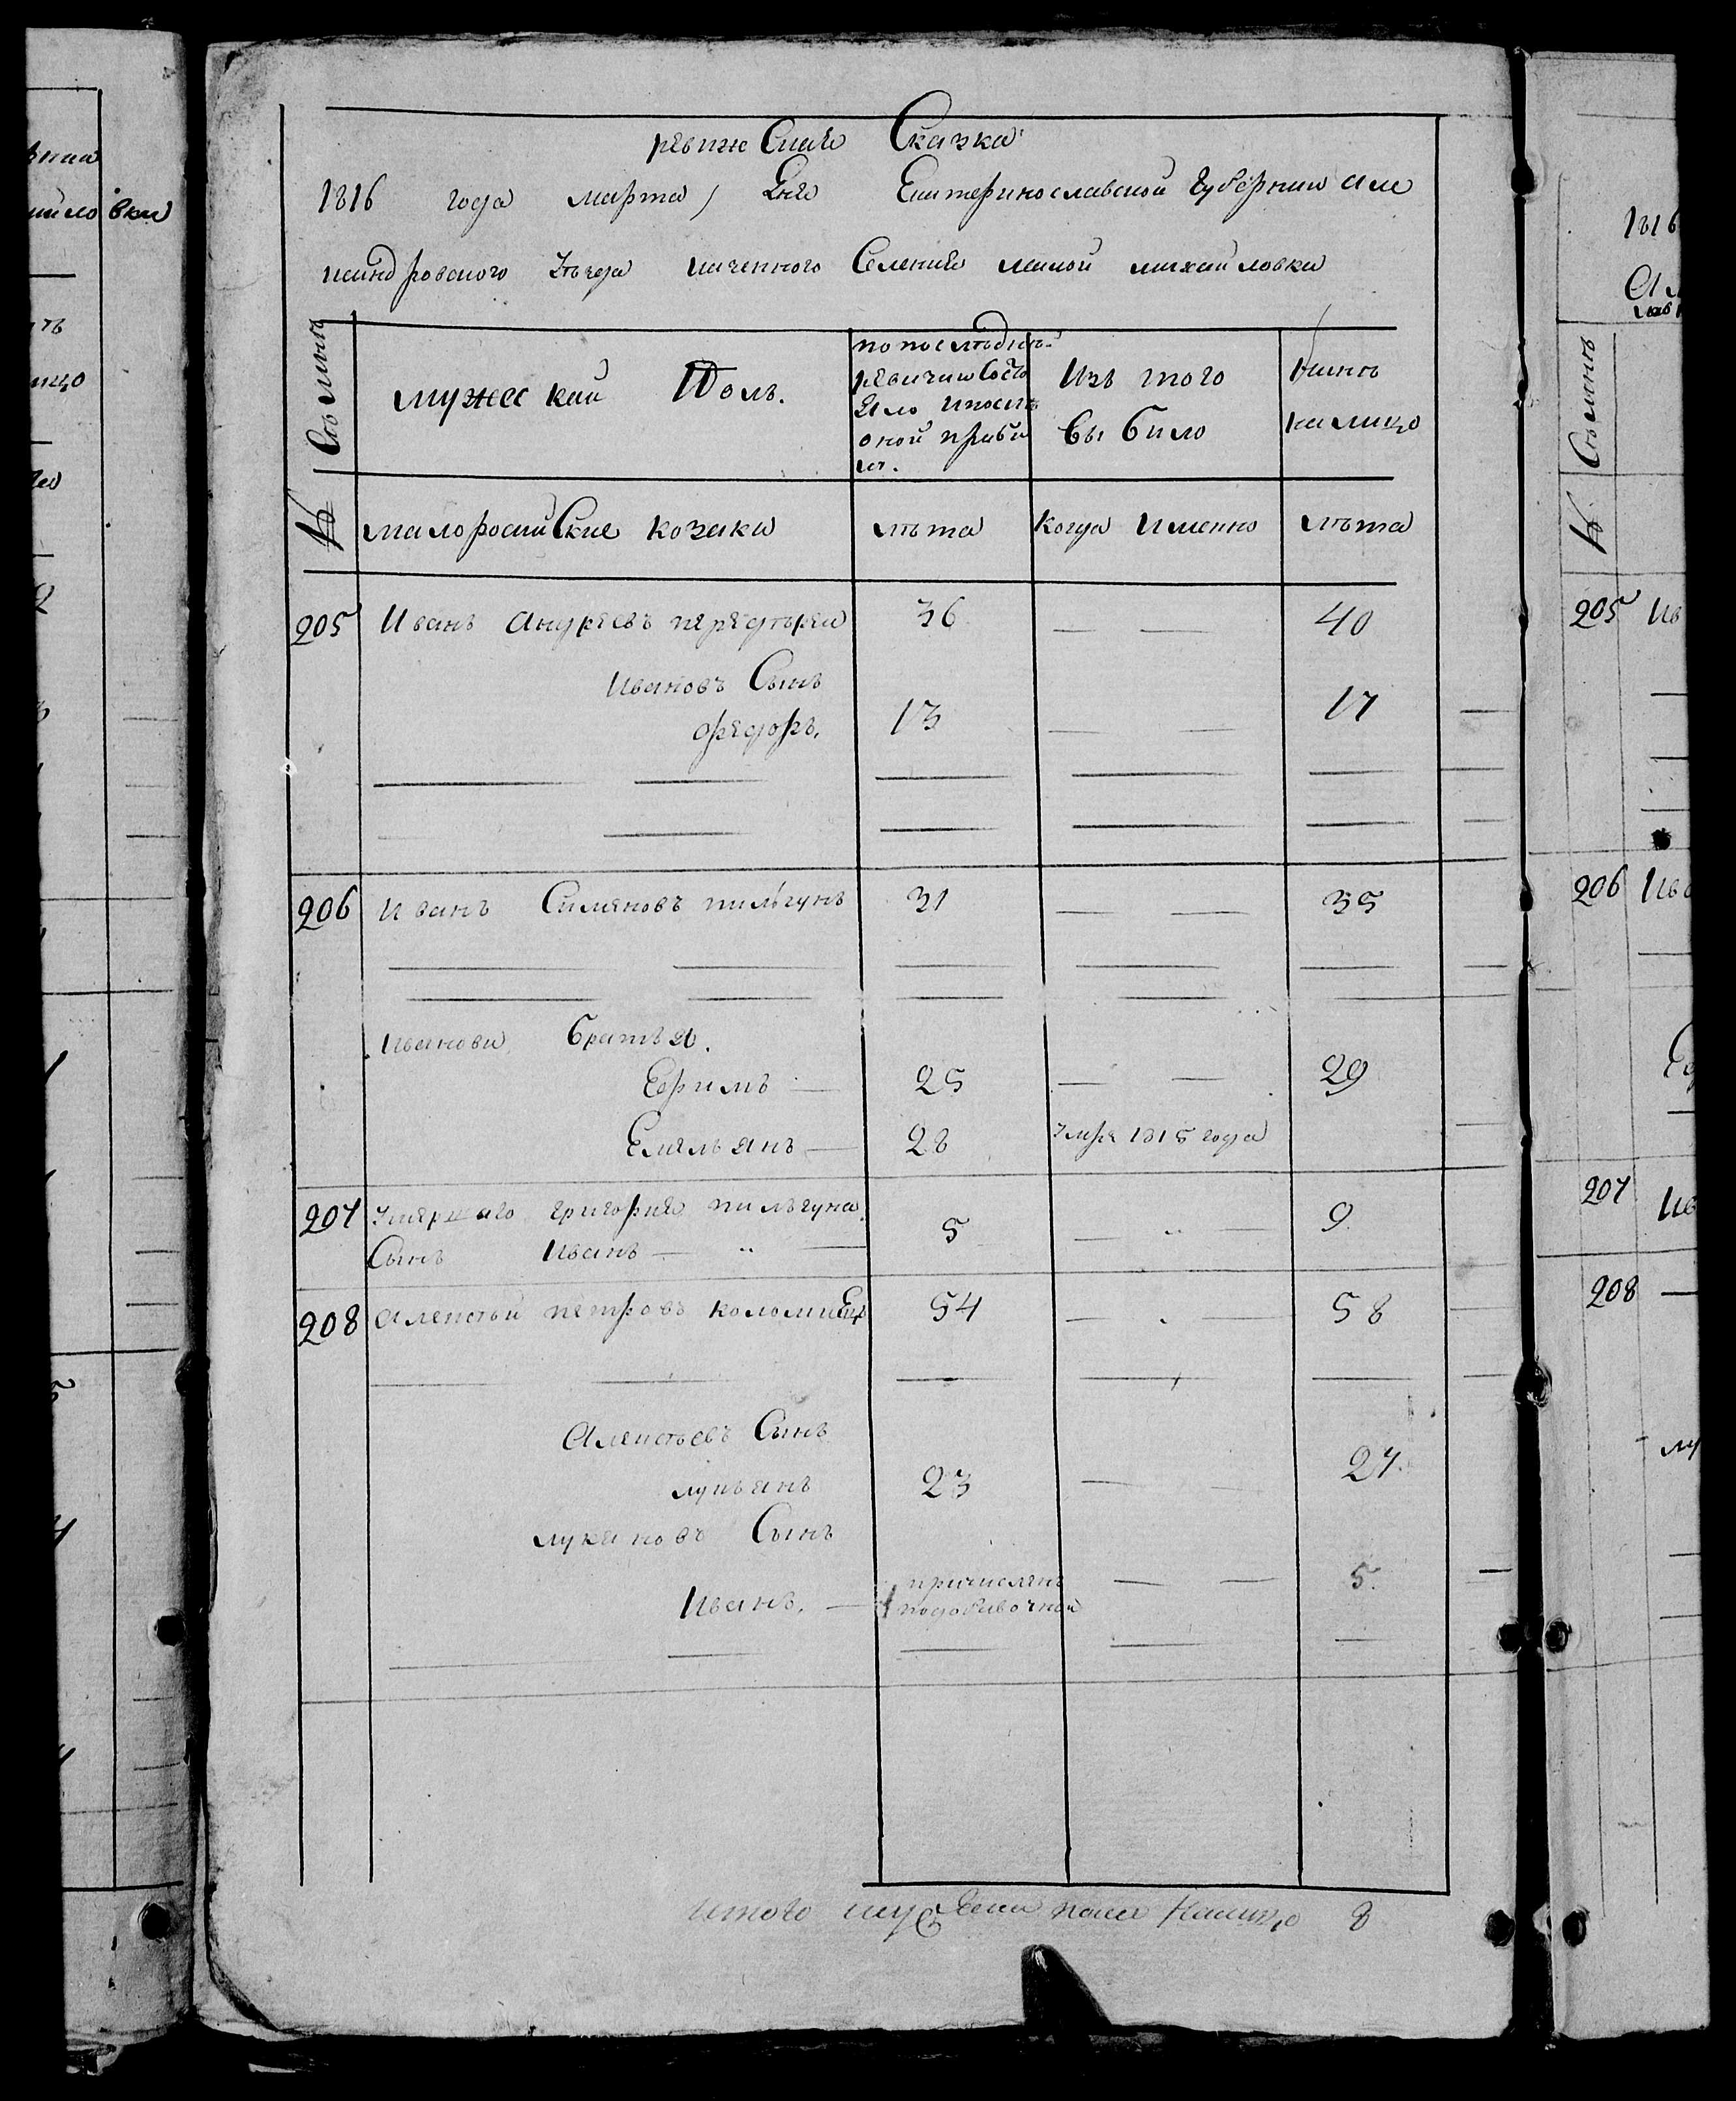 ревижская Сказка
1816 года марта дня Екатеринославской Губернии Але
ксандровского уезда казенного Селения малой михайловки
Семьи
мужескии Полъ.
по последней
ревизии Состо
яло и после
оной прибы
ло.
Изъ того
выбило
Ныне
на лицо
№
малоросийские козаки
лета
когда именно
лета
205 Иванъ Андреевъ передерей 36 — — 40
Ивановъ Сынъ
федоръ. 13 — — 17
206 Иванъ Симяновъ пильгунъ 31 — — 35
Иванови братья.
Ефимъ — 25 — — 29
Емельянъ — 28 умре 1815 года
207 умершаго григория пильгуна
Сынъ Иванъ — 5 — — 9
208 алексей петровъ коломиецъ 54 — — 58
Алексеевъ Сынъ
лукьянъ 23 — 27.
лукяновъ Сынъ
Иванъ. — причисленъ
подобавочной — — 5.
итого мужеска пола налицо 8
вки
1816
Семьи
№
205 Ив
206 Ива
207 Ив
208